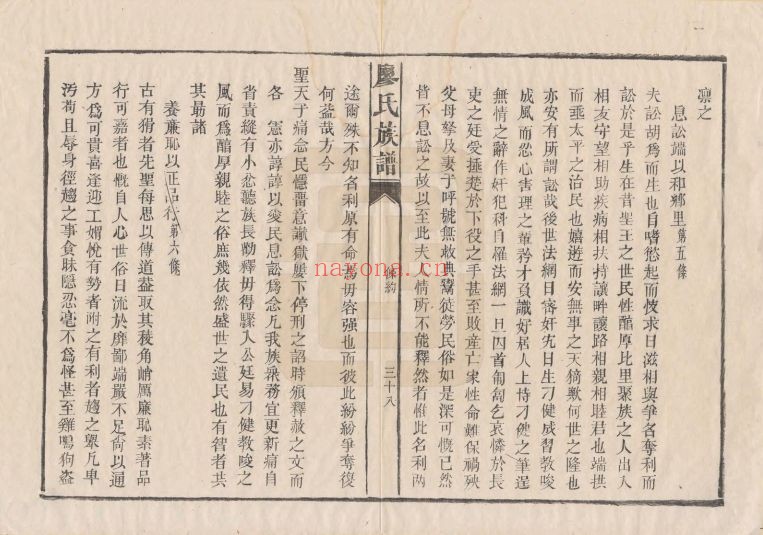 凛之
息訟端以和鄉里第五條
夫訟胡爲而生也自嗜慾起而忮求日滋相與爭名奪利而
訟於是乎生在昔聖王之世民性醕厚比里聚族之人出入
相友守望相助疾病相扶持讓畔讓路相親相睦君也端拱
而乘太平之治民也嬉遊而安無事之天猗歟何世之隆也
亦安有所謂訟哉後世法網日密奸宄日生刁健成習教唆
成風而忿心害理之輩矜才負識好居人上持刁健之筆逞
無情之辭作奸犯科自羅法網一旦囚首匍匐乞哀憐於長
吏之廷受捶楚於下役之手甚至敗產亡家性命難保禍殃
父母孥及妻子呼號無救典鬻徒勞民俗如是深可慨已然
皆不息訟之故以至此夫人情所不能釋然者惟此名利兩
廖氏族譜
條約
三十八
途爾殊不知名利原有命焉毋容强也而彼此紛紛爭奪復
何益哉方今
聖天子痛念民隱畱意讞獄屢下停刑之詔時頒釋赦之文而
各 憲亦諄諄以愛民息訟爲念凡我族衆務宜更新痛自
省責縱有小忿聽族長勸釋毋得驟入公廷易刁健教唆之
風而爲醕厚親睦之俗庶幾依然盛世之遺民也有智者共
其勗諸
養廉恥以正品行第六條
古有狷者先聖每思以傳道葢取其稜角峭厲廉恥素著品
行可嘉者也慨自人心世俗日流於靡鄙端嚴不足尚以通
方爲可貴喜逢迎工媚悅有勢者附之有利者趨之舉凡卑
汚苟且辱身徑趨之事貪昧隱忍毫不爲怪甚至雞鳴狗盜
nayona.cn